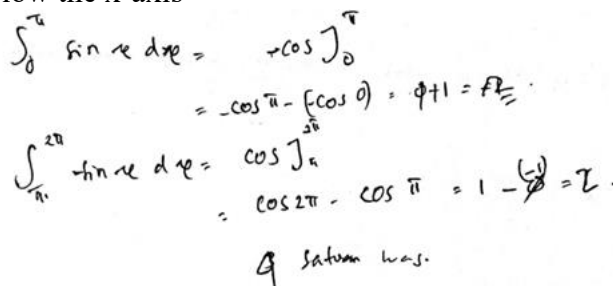 low the x-axis
∫₀^π sin x dx = -cos]₀^π
= -cos π - (-cos 0) = 1+1 = 2
∫_π^2π -sin x dx = cos]_π^2π
= cos 2π - cos π = 1 - (-1) = 2.